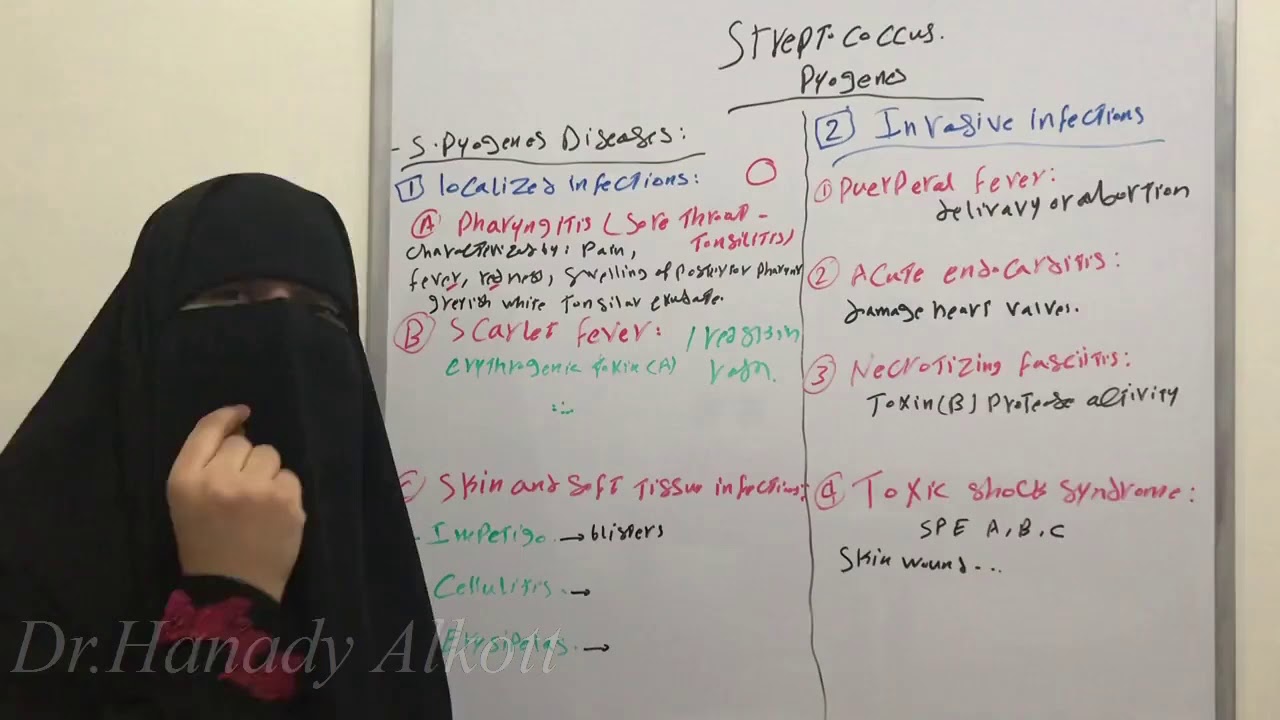 Streptococcus.
Pyogenes
- S. Pyogenes Diseases:
1 localized infections:
A Pharyngitis (Sore throat -
Tonsilitis)
characterized by: Pain,
fever, redness, swelling of posterior pharynx
greyish white Tonsilar exudate.
B Scarlet fever: / reddish
erythrogenic toxin (A) rash.
C Skin and soft Tissue infections:
- Impetigo. → blisters
Cellulitis. →
Erysipelas. →
2 Invasive infections
1 Puerperal fever:
delivary or abortion
2 Acute endocarditis:
damage heart valves.
3 Necrotizing fasciitis:
Toxin (B) Protease activity
4 Toxic shock syndrome:
SPE A, B, C
Skin wound...
Dr.Hanady Alkott